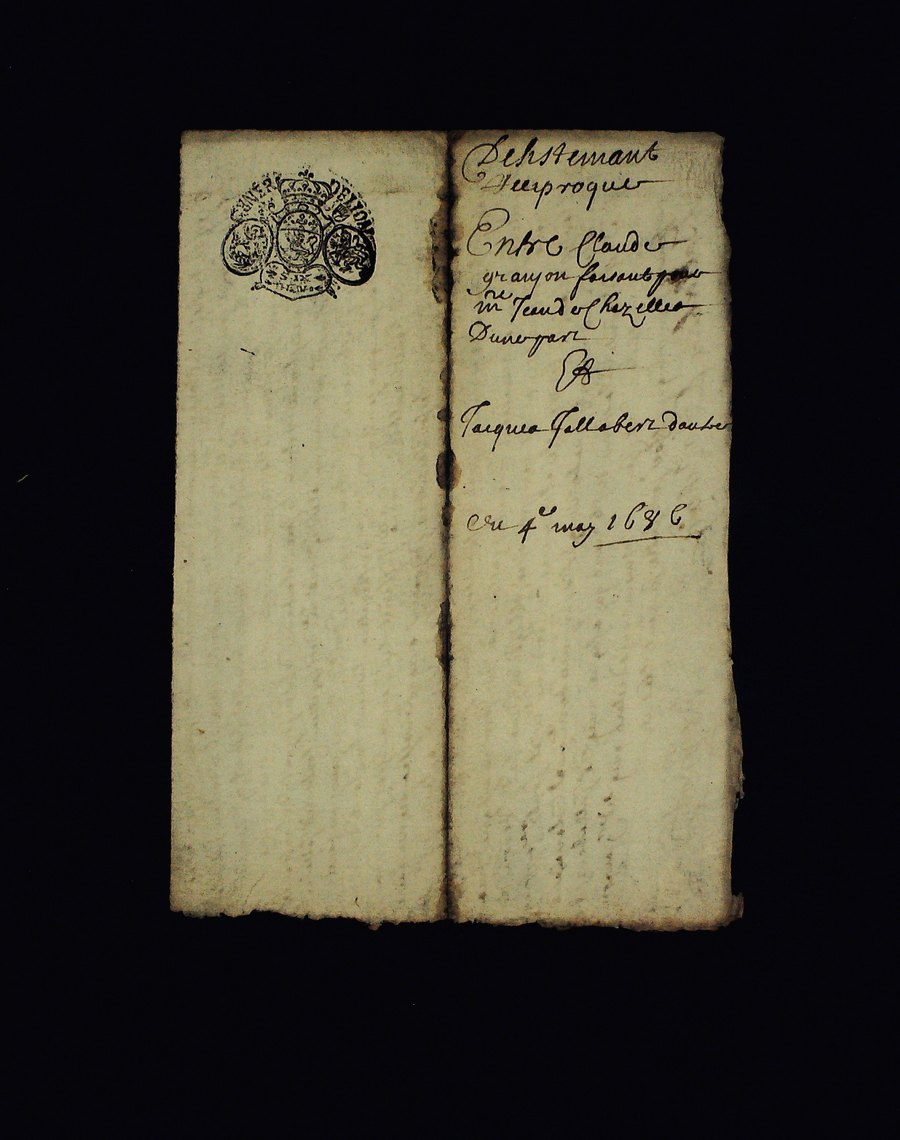 GENER DE LION
SIX
DEN
Desistemant
Reciproque
Entre Claude
granjon faisant pour
mre Jean de Chazelles
Dune part
Et
Jacques Jallabert dautre
Du 4e may 1686